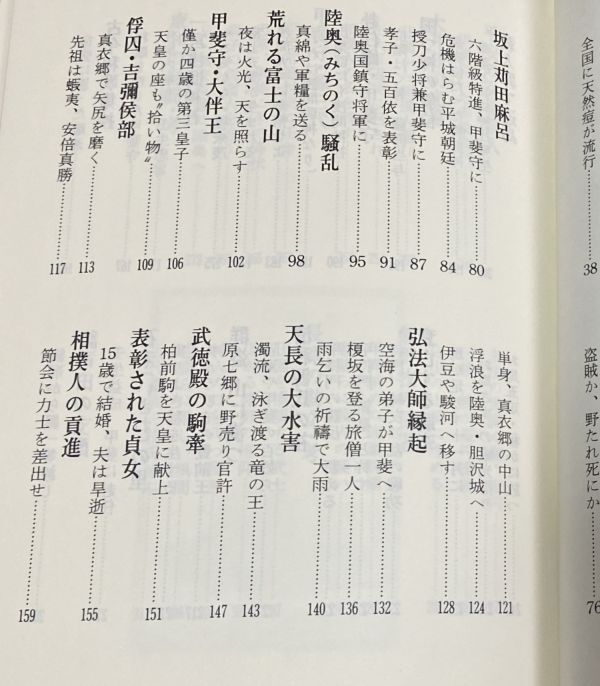 全国に天然痘が流行……38
盗賊か、野たれ死にか……76
坂上苅田麻呂
六階級特進、甲斐守に……80
危機はらむ平城朝廷……84
授刀少将兼甲斐守に……87
孝子・五百依を表彰……91
陸奥国鎮守将軍に……95
陸奥(みちのく)騒乱
真綿や軍糧を送る……98
荒れる富士の山
夜は火光、天を照らす……102
甲斐守・大伴王
僅か四歳の第三皇子……106
天皇の座も〝拾い物〟……109
俘囚・吉彌侯部
真衣郷で矢尻を磨く……113
先祖は蝦夷、安倍真勝……117
単身、真衣郷の中山……121
浮浪を陸奥・胆沢城へ……124
伊豆や駿河へ移す……128
弘法大師縁起
空海の弟子が甲斐へ……132
榎坂を登る旅僧一人……136
雨乞いの祈禱で大雨……140
天長の大水害
濁流、泳ぎ渡る竜の王……143
原七郷に野売り官許……147
武徳殿の駒牽
柏前駒を天皇に献上……151
表彰された貞女
15歳で結婚、夫は早逝……155
相撲人の貢進
節会に力士を差出せ……159